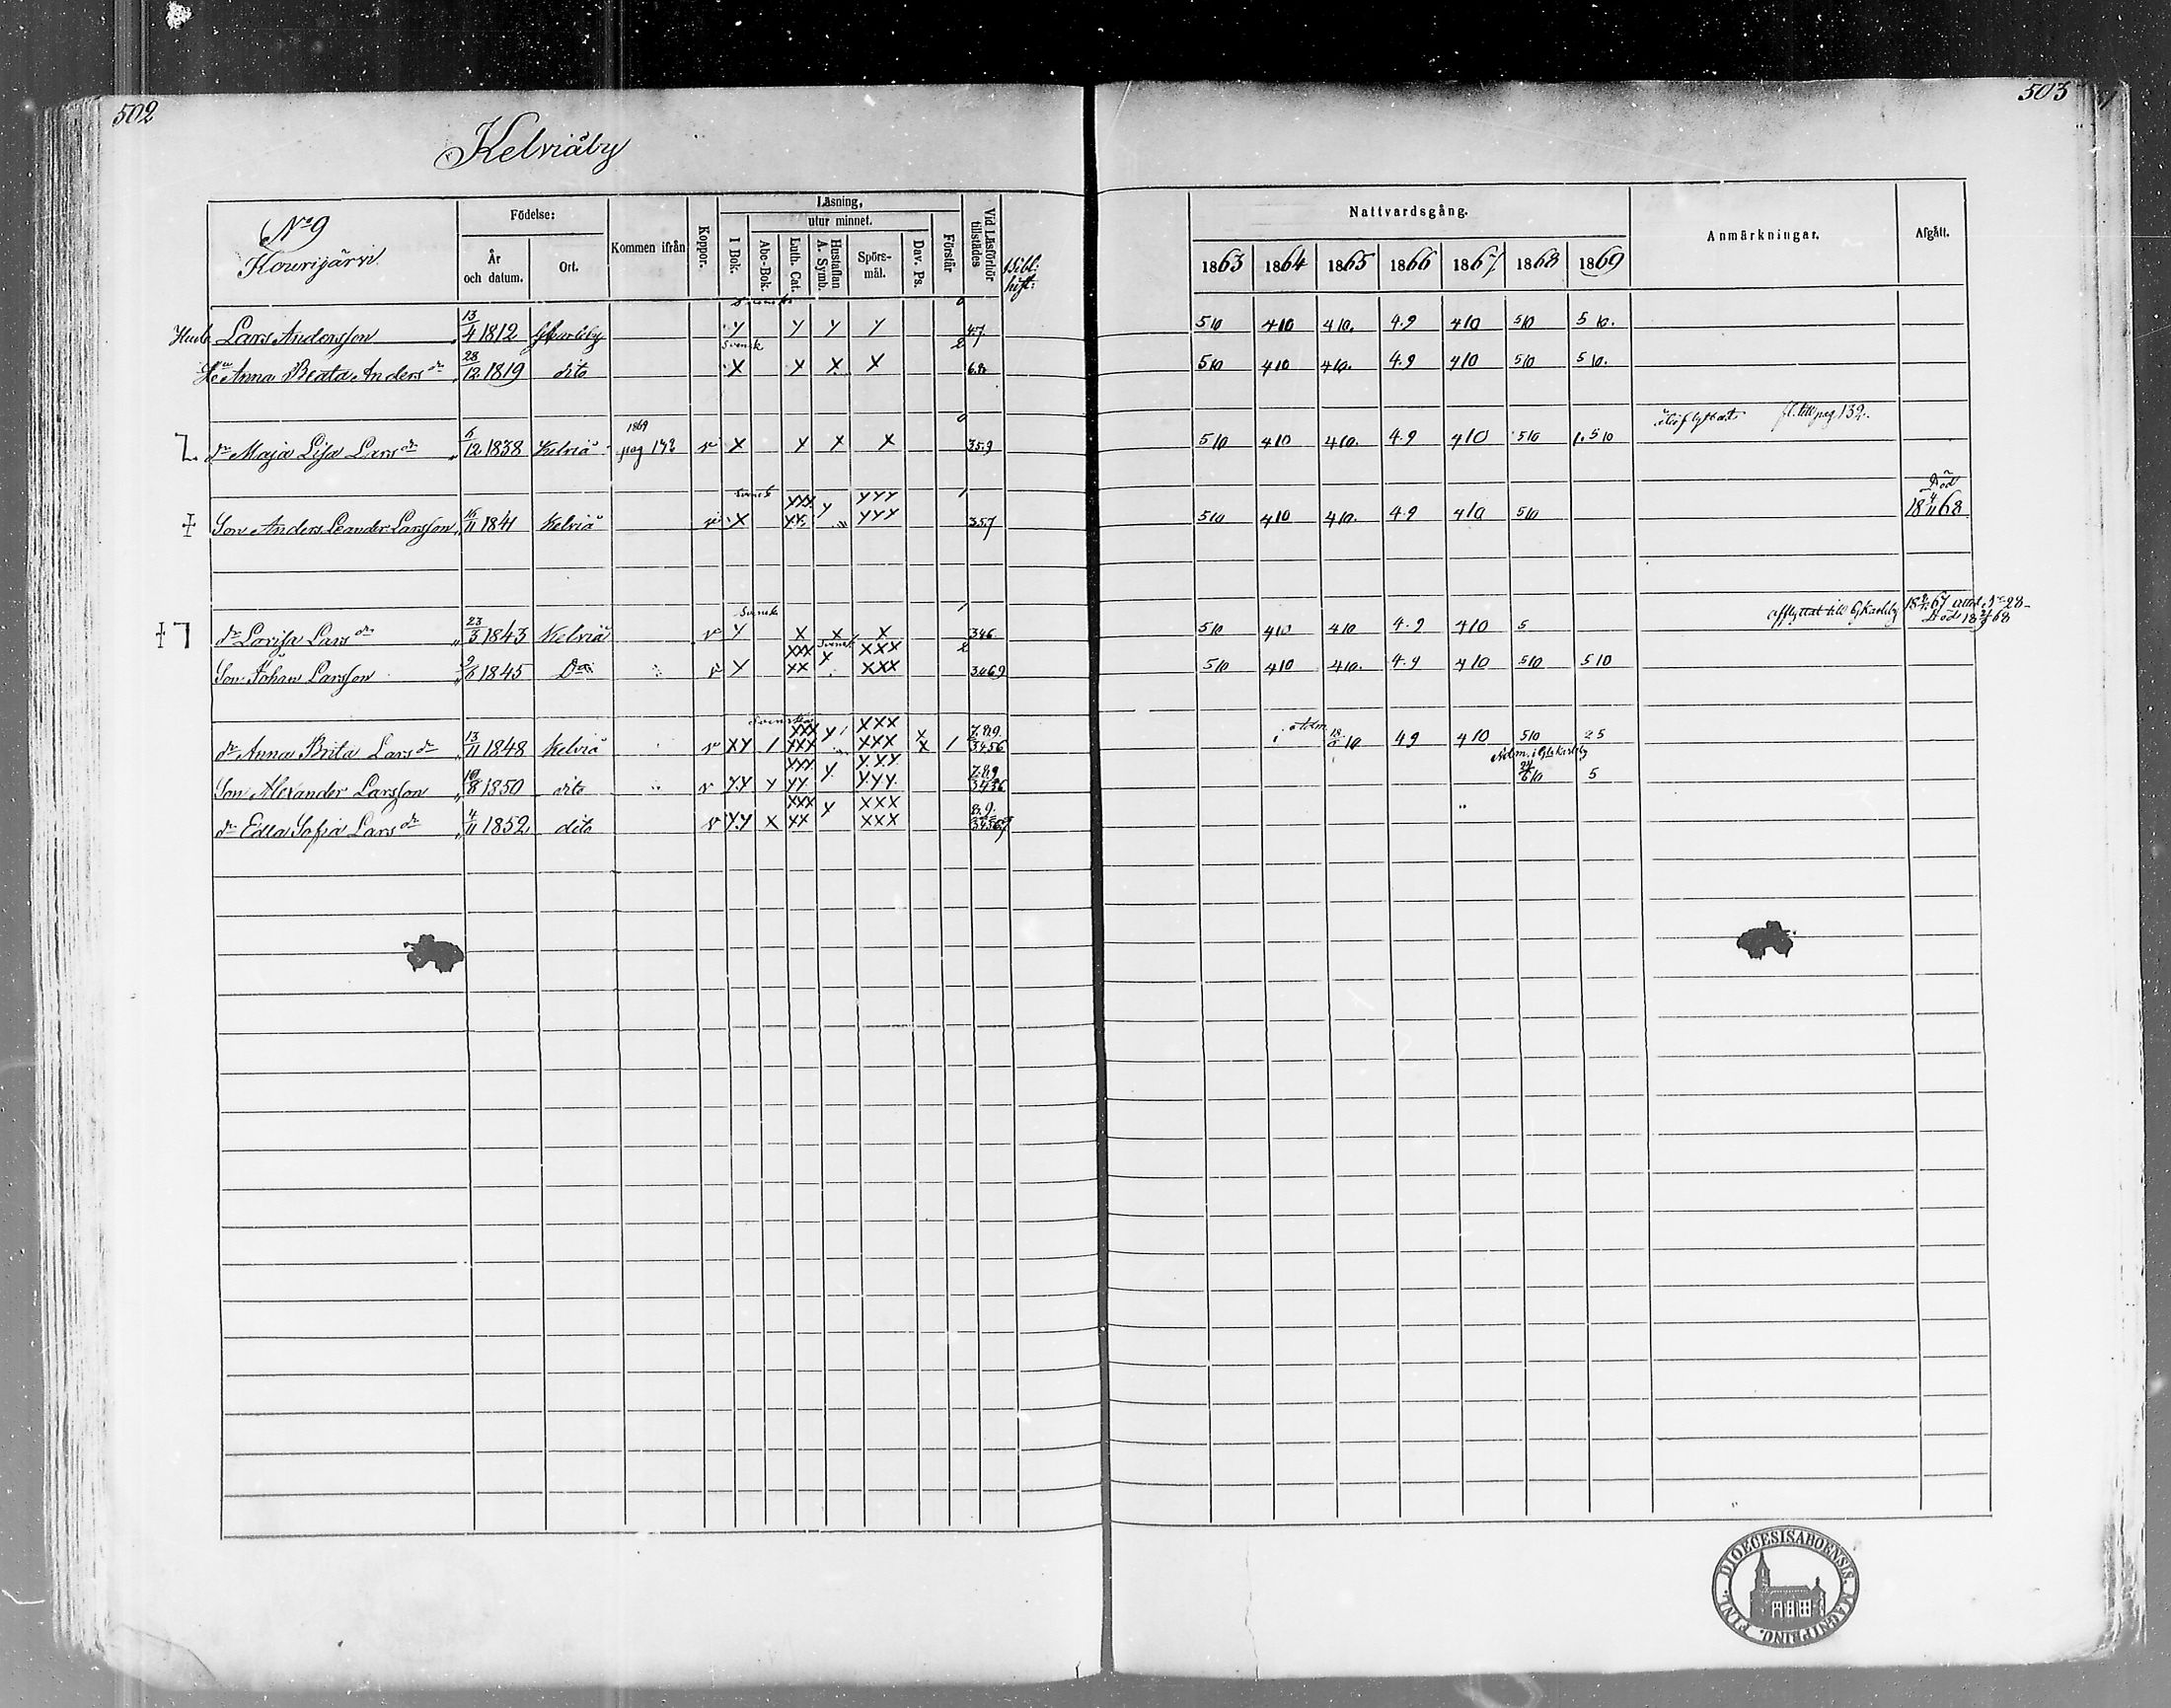 502
503
Kelviåby
No 9
Kourijärvi
Födelse:
År och datum.
Ort.
Kommen ifrån
Koppor.
Läsning,
utur minnet.
I Bok.
Abc-Bok.
Luth. Cat.
Hustaflan A. Symb.
Spörs-mål.
Dav. Ps.
Förstår
Vid Läsförhör tillstädes
Bibl: hist:
Nattvardsgång.
1863 1864 1865 1866 1867 1868 1869
Anmärkningar.
Afgått.
Lars Andersson 13/4 1812 Gkarleby Y Y Y Y 4.7 5 10 4 10 4 10. 4.9 4 10 5 10 5 10.
Svensk 2
Hu Anna Beata Anders dr 28/12 1819 dito X X X X 5 10 4 10 4 10. 4.9 4 10 5 10 5 10.
1869 fl. till pag 132.
dr Maja Lisa Lars dr 6/12 1838 Kelviå pag 132 v X X X X 35.9 5 10 4 10 4 10. 4.9 4 10 5 10 1. 5 10
Svensk XXX YYY 1 Död
Son Anders Leander Larsson 1841 Kelviå v X XX Y YYY 357 5 10 4 10 4 10. 4.9 4 10 5 10 18 4/11 68
Svensk 1 afflyttat till Gkarleby
dr Lovisa Lars dr 23/3 1843 Kelviå v Y X X X 346 5 10 4 10 4 10 4.9 4 10 5
XXX Svensk XXX 2
Son Johan Larsson 9/6 1845 Do v Y XX X XXX 3469 5 10 4 10 4 10. 4.9 4 10 5 10 5 10
Svenska XXX XXX X 7.8.9. Adm.
dr Anna Brita Lars dr 13/11 1848 Kelviå v XY 1 XXX XXX X 1 3456 10 4 9 4 10 5 10 2 5
XXX Y YYY 7.8.9 Adm. i Glakarleby
Son Alexander Larsson 10/8 1850 dito v YY Y YY YYY 3456 24/6 10 5
XXX Y XXX 8.9.
dr Edla Sofia Lars dr 4/11 1852 dito v YY X XX XXX
DIOECESIS ABOENSIS. MAGNI PRINC. FINL.